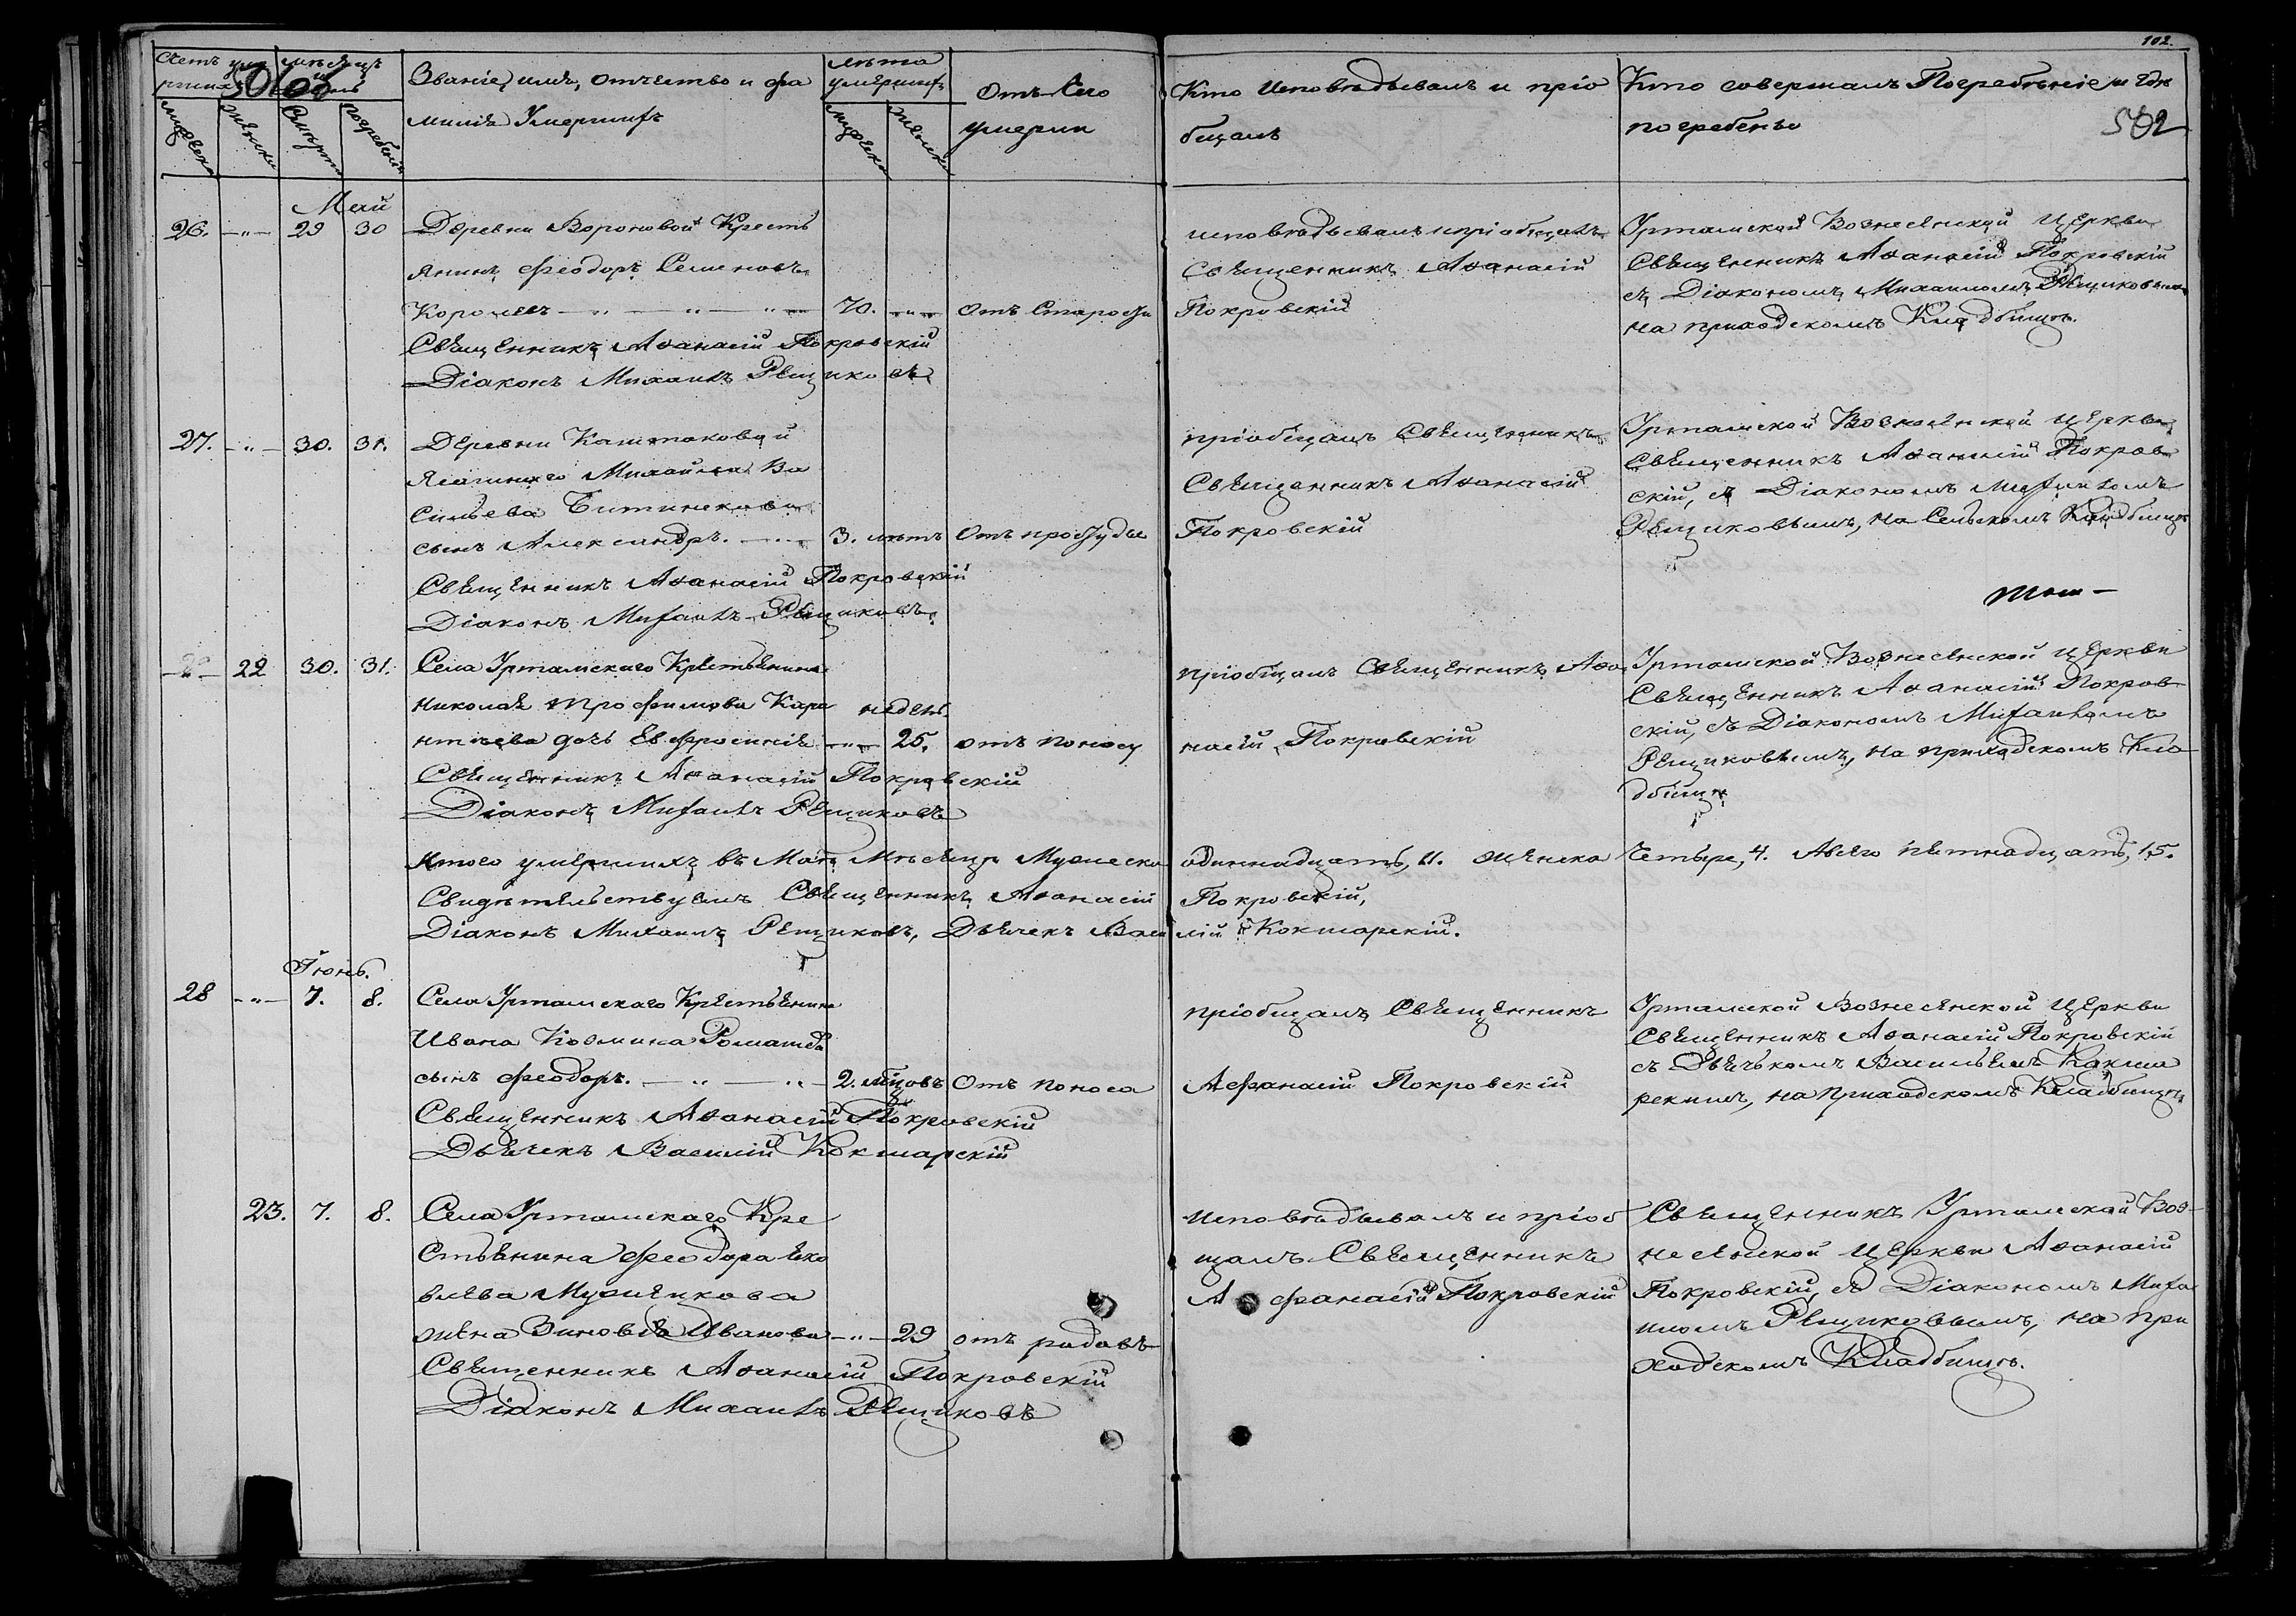 102.
502
Счетъ умершихъ
мѣсяцъ и день
Званіе, имя, отчество и фа
милія Умершихъ
лѣта умершихъ
Отъ чего
умерли
Кто исповѣдывалъ и пріо
бщалъ
Кто совершалъ Погребеніе и гдѣ
погребены
мужеска
женска
Смерти
погребенія
мужеска
женска
Май
26. -"- 29 30
Деревни Вороновой Кресть
янинъ Феодоръ Семеновъ
Королевъ -"-"-"- 70. -"- Отъ Старости
Священникъ Аѳанасій Покровскій
Діаконъ Михаилъ Рещиковъ
исповѣдывалъ и пріобщалъ
Священникъ Аѳанасій
Покровскій
Уртамской Вознесенской Церкви
Священникъ Аѳанасій Покровскій
съ Діакономъ Михаиломъ Рещиковымъ
на приходскомъ Кладбищѣ.
27. -"- 30. 31.
Деревни Каштаковой
Ясашнаго Михайла Ва
сильева
сынъ Александръ. — 3. лѣтъ Отъ простуды
Священникъ Аѳанасій Покровскій
Діаконъ Михаилъ Рещиковъ.
пріобщалъ Священникъ
Священникъ Аѳанасій
Покровскій
Уртамской Вознесенской Церкви
Священникъ Аѳанасій Покров
скій, съ Діакономъ Михаиломъ
Рещиковымъ, на Сельскомъ Кладбищѣ
22 30. 31.
Села Уртамскаго Крестьянина
Николая Трофимова Каре
недѣль.
нтьева дочь Евфросинія -"- 25. отъ поносу
Священникъ Аѳанасій Покровскій
Діаконъ Михаилъ Рещиковъ
пріобщалъ Священникъ Аѳа
насій Покровскій
Уртамской Вознесенской Церкви
Священникъ Аѳанасій Покров
скій, съ Діакономъ Михаиломъ
Рещиковымъ, на приходскомъ Кла
дбищѣ
Итого умершихъ въ Маѣ Мѣсяцѣ Мужеска одиннадцать, 11. женска Четыре, 4. Авсего пятнадцать, 15.
Свидѣтельствуемъ Священникъ Аѳанасій Покровскій,
Діаконъ Михаилъ Рещиковъ, Дьячекъ Василій Кокшарскій.
Іюнь.
28 -"- 7. 8.
Села Уртамскаго Крестьянина
Ивана Козмина Ромашева
сынъ Феодоръ. -"-"- 2. мѣсяцовъ Отъ поноса
Священникъ Аѳанасій Покровскій
Дьячекъ Василій Кокшарскій
пріобщалъ Священникъ
Афанасій Покровскій
Уртамской Вознесенской Церкви
Священникъ Аѳанасій Покровскій
съ Дьячькомъ Васильемъ Кокша
рскимъ, на Приходскомъ Кладбищѣ
23. 7. 8.
Села Уртамскаго Кре
стьянина Феодора Яко
влева Муженкова
жена Зиновья Иванова -"- 29 отъ родовъ
Священникъ Аѳанасій Покровскій
Діаконъ Михаилъ Рещиковъ
исповѣдывалъ и пріоб
щалъ Священникъ
Афанасій Покровскій
Священникъ Уртамской Воз
несенской Церкви Аѳанасій
Покровскій, съ Діакономъ Миха
иломъ Рещиковымъ, на при
ходскомъ Кладбищѣ.